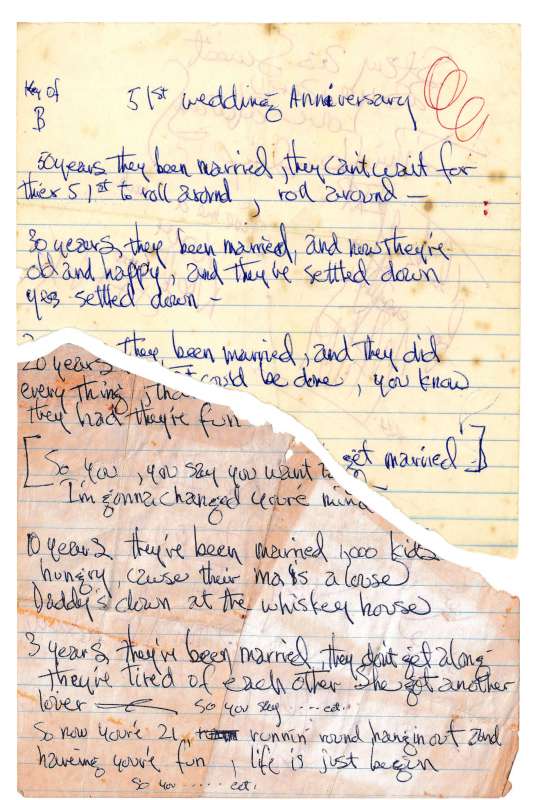 Key of
B
51st wedding Anniversary
50 years they been married, they can't wait for
thier 51st to roll around, roll around —
30 years, they been married, and now they're
old and happy, and they've settled down
yes settled down —
20 years they been married, and they did
every thing, that could be done, you know
they had they're fun
[So you, you say you want to get married]
I'm gonna changed youre mind
10 years they've been married 1,000 kids
hungry, cause their ma is a louse
Daddy's down at the whiskey house
3 years, they've been married, they don't get along
they're tired of each other she got another
lover — so you say ..... ect.
So now you're 21, runnin' round hangin out and
haveing you're fun, life is just begun
so you ...... ect.